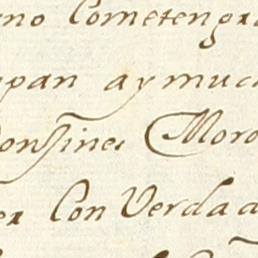 no Cometen gra
pan ay muc
onfines Moro
er Con Verda a